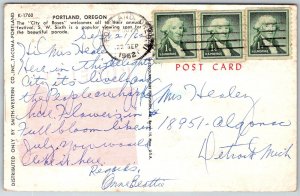 K-1760 PORTLAND, OREGON
The "City of Roses" welcomes all to their annual
festival. S. W. Sixth is a popular viewing spot for
the beautiful parade.
Hi Mrs Healey
Here in this
City its lovely and
the People are
here Flowers in
Full bloom like in
July you would
like it here.
Regards,
PORTLAND
SEP
1962
POST CARD
Mrs Healey
18951 - Algonac
Detroit Mich
DISTRIBUTED ONLY BY SMITH-WESTERN CO., INC. TACOMA-PORTLAND